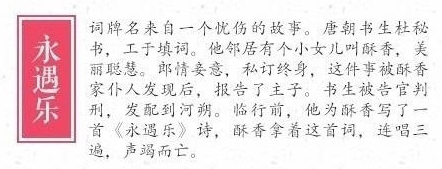 永遇乐
词牌名来自一个忧伤的故事。唐朝书生杜秘
书，工于填词。他邻居有个小女儿叫酥香，美
丽聪慧。郎情妾意，私订终身，这件事被酥香
家仆人发现后，报告了主子。书生被告官判
刑，发配到河朔。临行前，他为酥香写了一
首《永遇乐》诗，酥香拿着这首词，连唱三
遍，声竭而亡。